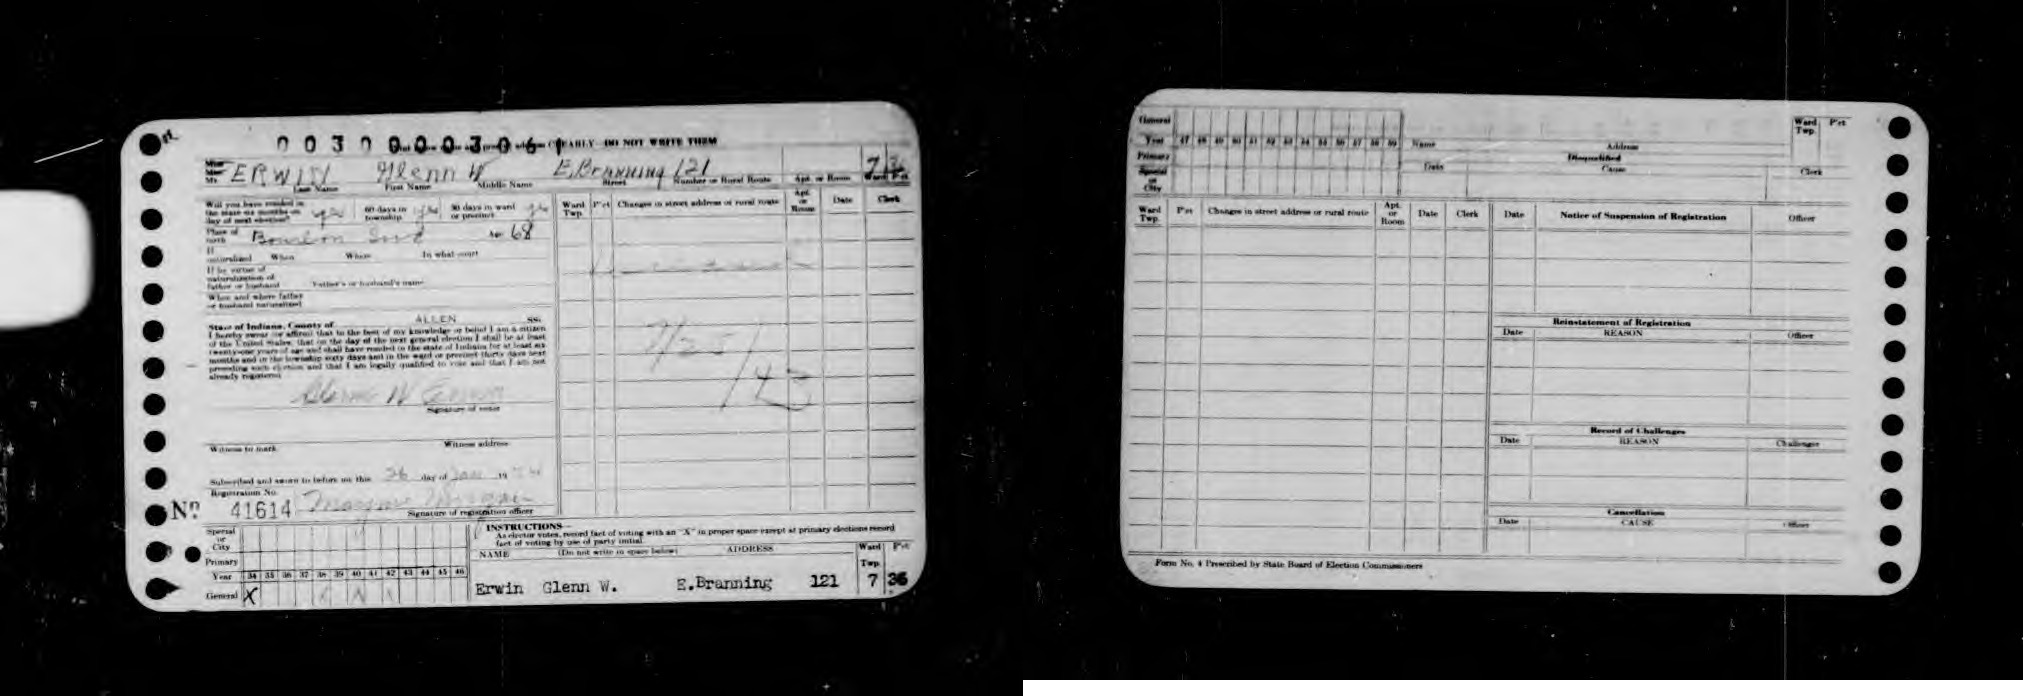 0030000306 EARLY—DO NOT WRITE THEM
Miss
Mrs.
Mr. ERWIN Glenn W E. Branning 121 7 36
Last Name First Name Middle Name Street Number or Rural Route Apt. or Room Ward Pct
Will you have resided in the state six months on day of next election? yes 60 days in township yes 30 days in ward or precinct yes
Place of birth Bourbon Ind Age 68
If naturalized When Where In what court
If by virtue of naturalization of father or husband Father's or husband's name
When and where father or husband naturalized
State of Indiana, County of ALLEN SS:
I hereby swear (or affirm) that to the best of my knowledge or belief I am a citizen
of the United States, that on the day of the next general election I shall be at least
twenty-one years of age and shall have resided in the state of Indiana for at least six
months and in the township sixty days and in the ward or precinct thirty days next
preceding such election and that I am legally qualified to vote and that I am not
already registered
Glenn W Erwin
Signature of voter
Witness to mark Witness address
Subscribed and sworn to before me this 26 day of Jan 19
Registration No.
No 41614
Signature of registration officer
Ward Twp. P'ct Changes in street address or rural route Apt. or Room Date Clerk
7/25/43
Special or City
Primary
Year 34 35 36 37 38 39 40 41 42 43 44 45 46
General X
INSTRUCTIONS—
As elector votes, record fact of voting with an "X" in proper space except at primary elections record
fact of voting by use of party initial.
NAME (Do not write in space below) ADDRESS Ward Twp. P'ct
Erwin Glenn W. E.Branning 121 7 36
General
Year 47 48 49 50 51 52 53 54 55 56 57 58 59
Primary
Special or City
Name Address Ward Twp. P'ct
Disqualified
Date Cause Clerk
Ward Twp. P'ct Changes in street address or rural route Apt. or Room Date Clerk
Date Notice of Suspension of Registration Officer
Reinstatement of Registration
Date REASON Officer
Record of Challenges
Date REASON Challenger
Cancellation
Date CAUSE Officer
Form No. 4 Prescribed by State Board of Election Commissioners